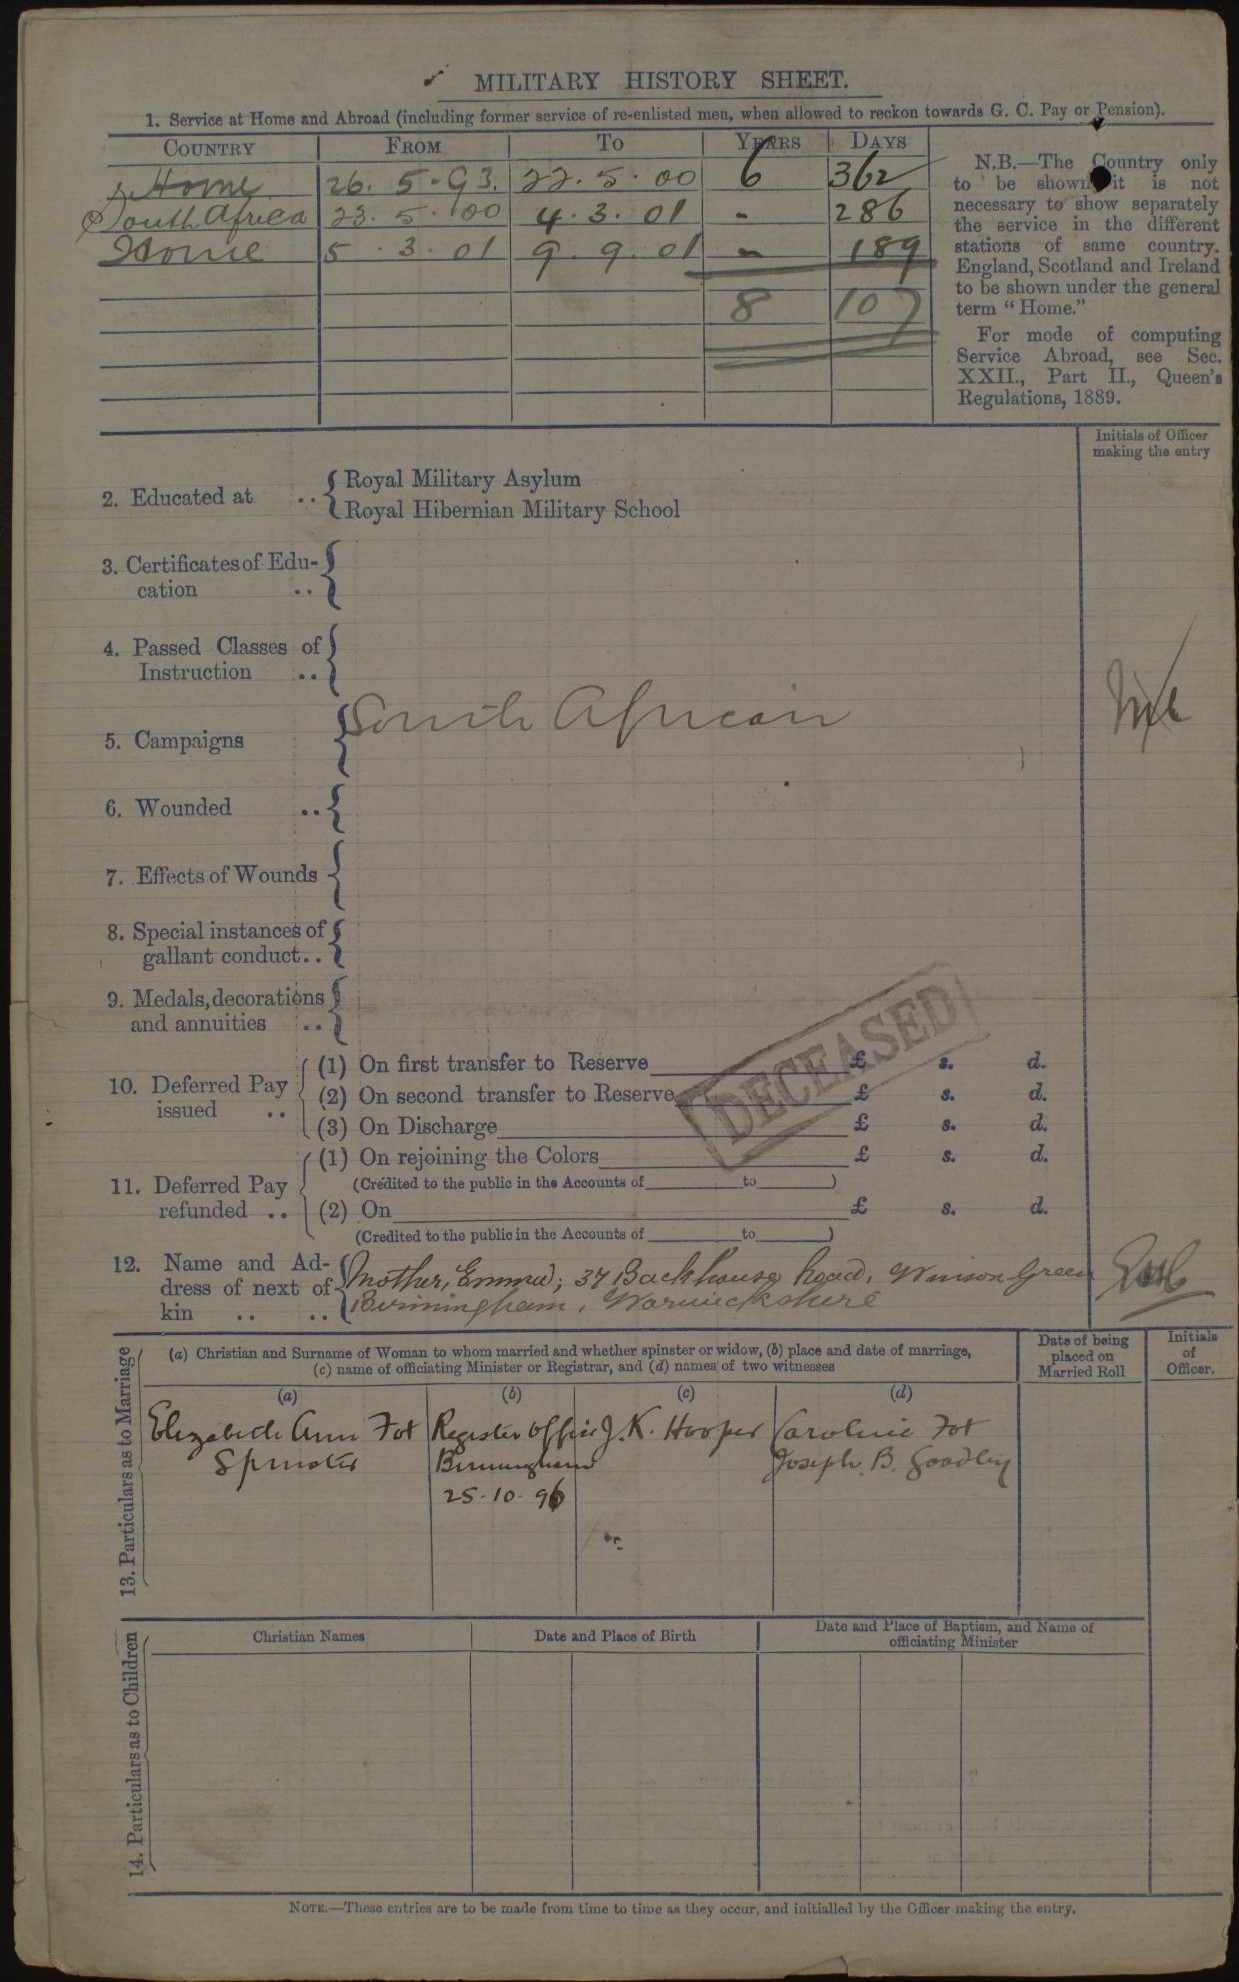 MILITARY HISTORY SHEET.
1. Service at Home and Abroad (including former service of re-enlisted men, when allowed to reckon towards G. C. Pay or Pension).
COUNTRY FROM TO YEARS DAYS
Home 26. 5. 93. 22. 5. 00 6 362
South Africa 23. 5. 00 4. 3. 01 - 286
Home 5. 3. 01 9. 9. 01 - 189
8 107
N.B.—The Country only
to be shown it is not
necessary to show separately
the service in the different
stations of same country.
England, Scotland and Ireland
to be shown under the general
term “Home.”
For mode of computing
Service Abroad, see Sec.
XXII., Part II., Queen's
Regulations, 1889.
Initials of Officer
making the entry
2. Educated at .. Royal Military Asylum
Royal Hibernian Military School
3. Certificates of Edu-
cation ..
4. Passed Classes of
Instruction ..
5. Campaigns South African
6. Wounded ..
7. Effects of Wounds
8. Special instances of
gallant conduct..
9. Medals, decorations
and annuities ..
DECEASED
10. Deferred Pay
issued ..
(1) On first transfer to Reserve £ s. d.
(2) On second transfer to Reserve £ s. d.
(3) On Discharge £ s. d.
11. Deferred Pay
refunded ..
(1) On rejoining the Colors £ s. d.
(Credited to the public in the Accounts of to )
(2) On £ s. d.
(Credited to the public in the Accounts of to )
12. Name and Ad-
dress of next of
kin .. ..
Mother, Emma; 37 Backhouse Road, Winson Green
Birmingham, Warwickshire
13. Particulars as to Marriage
(a) Christian and Surname of Woman to whom married and whether spinster or widow, (b) place and date of marriage,
(c) name of officiating Minister or Registrar, and (d) names of two witnesses
Date of being
placed on
Married Roll
Initials
of
Officer.
(a) (b) (c) (d)
Elizabeth Ann Fot Register Office J. K. Hooper Caroline Fot
Spinster Birmingham Joseph. B. Goodley
25-10-96
14. Particulars as to Children
Christian Names Date and Place of Birth Date and Place of Baptism, and Name of
officiating Minister
NOTE.—These entries are to be made from time to time as they occur, and initialled by the Officer making the entry.